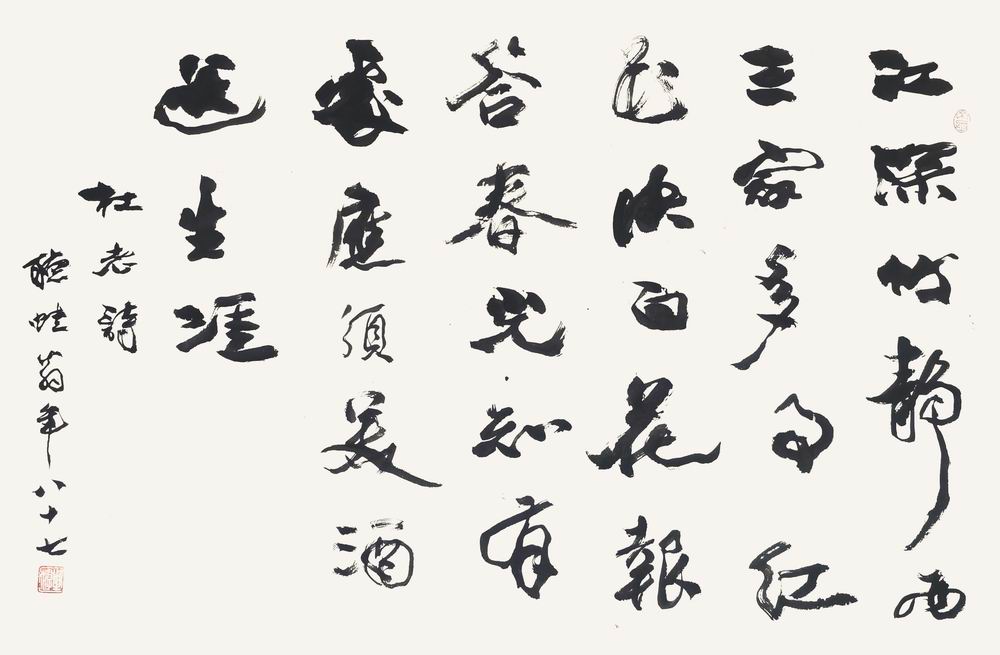 江深竹靜兩
三家多事紅
花映白花報
答春光知有
處應須美酒
送生涯
杜老詩
聽蛙翁年八十七